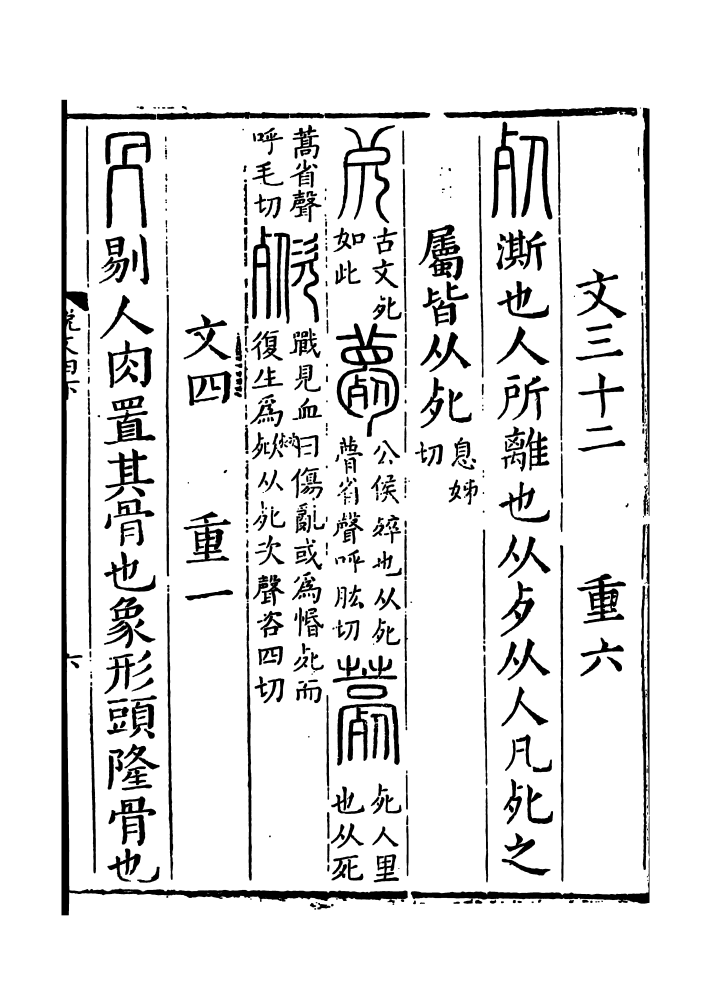 文三十二 重六
𣦸澌也人所離也从歺从人凡𣦸之
屬皆从𣦸息姊切
古文𣦸如此
薨公侯𣨛也从𣦸瞢省聲呼肱切
薧𣦸人里也从死蒿省聲呼毛切
戰見血曰傷亂或爲惽𣦸而復生爲㱞从𣦸次聲咨四切
文四 重一
冎剔人肉置其骨也象形頭隆骨也
說文四下
六